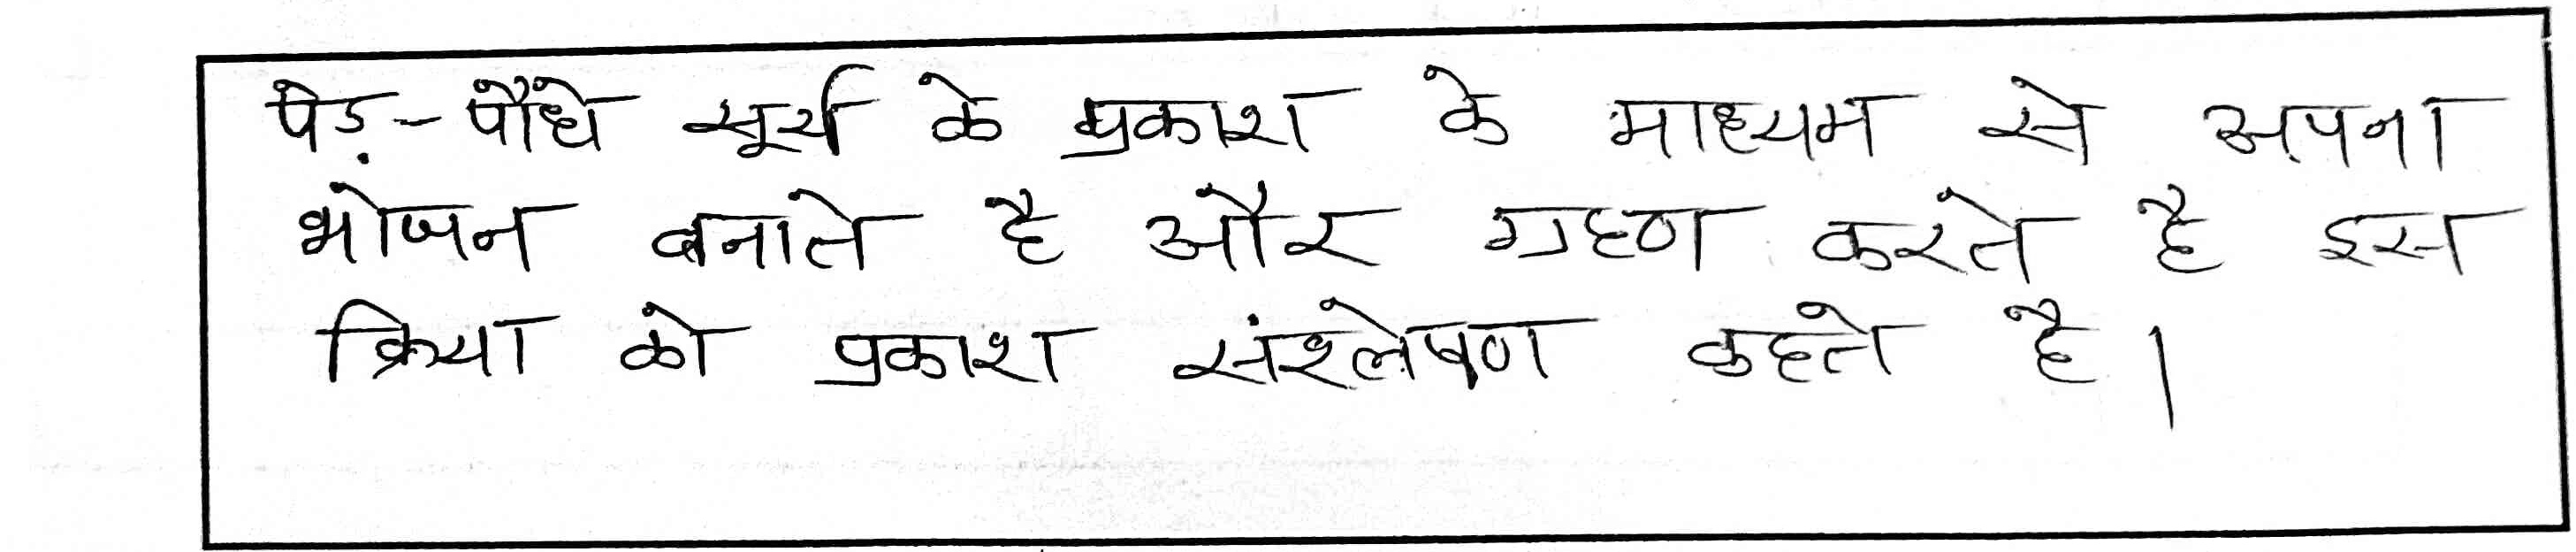 पेड़-पौधे सूर्य के प्रकाश के माध्यम से अपना
भोजन बनाते है और ग्रहण करते है इस
क्रिया को प्रकाश संश्लेषण कहते है।